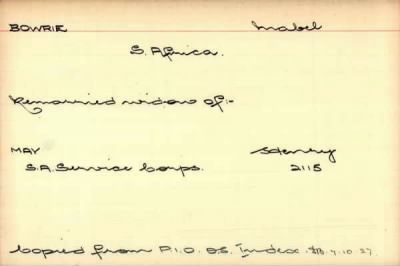 BOWRIE Mabel
S. Africa.
Remarried widow of:-
MAY Henry
S.A. Service Corps. 2115
Copied from P.I.O. O.S. Index. 7.10.27.